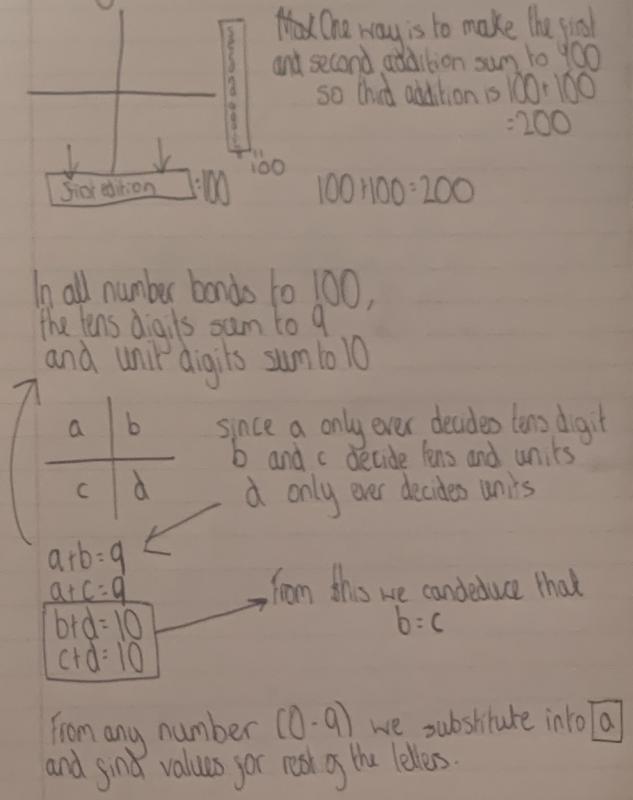 One way is to make the first
and second addition sum to 100
so third addition is 100+100
=200
second addi
100
first edition =100
100+100=200
In all number bonds to 100,
the tens digits sum to 9
and unit digits sum to 10
a b
c d
since a only ever decides tens digit
b and c decide tens and units
d only ever decides units
a+b=9
a+c=9
b+d=10
c+d=10
From this we can deduce that
b=c
From any number (0-9) we substitute into a
and find values for rest of the letters.